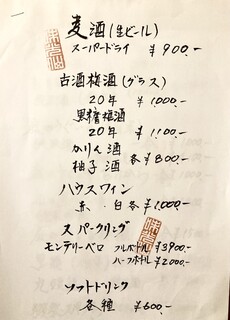 麦酒(生ビール)
スーパードライ ¥900.-
古酒梅酒(グラス)
20年 ¥1,000.-
黒糖梅酒
20年 ¥1,100.-
かりん酒
柚子酒 各¥800.-
ハウスワイン
赤・白 各¥1,000.-
スパークリング
モンテリーベロ フルボトル ¥3900.-
ハーフボトル ¥2000.-
ソフトドリンク
各種 ¥600.-